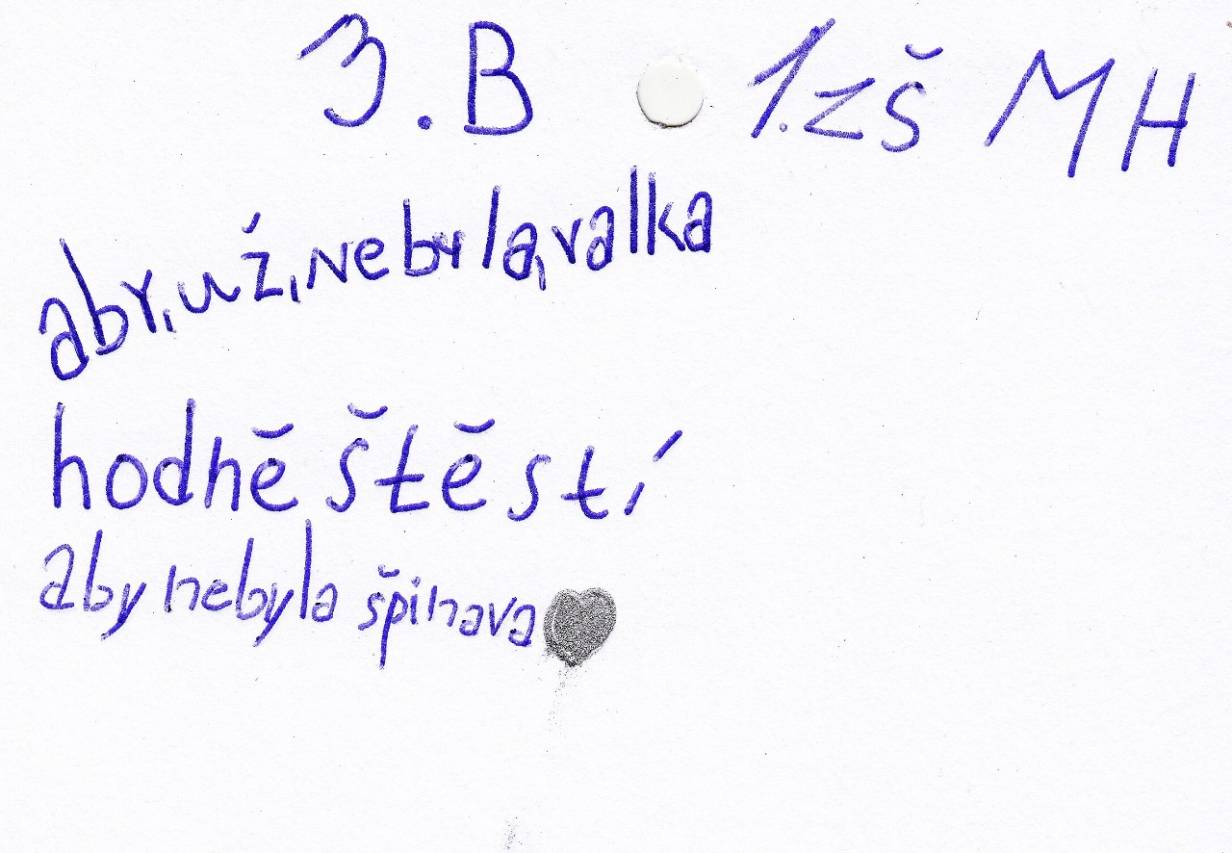 3.B 1.zš MH
aby, už, nebyla, valka
hodně štěstí
aby nebyla špinava